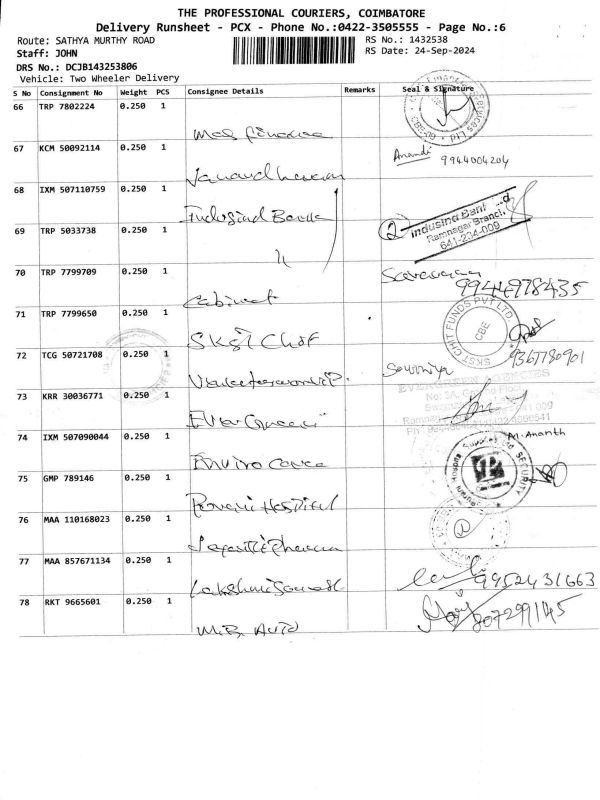 THE PROFESSIONAL COURIERS, COIMBATORE
Delivery Runsheet - PCX - Phone No.:0422-3505555 - Page No.:6
Route: SATHYA MURTHY ROAD RS No.: 1432538
Staff: JOHN RS Date: 24-Sep-2024
DRS No.: DCJB143253806
Vehicle: Two Wheeler Delivery
S No Consignment No Weight PCS Consignee Details Remarks Seal & Signature
66 TRP 7802224 0.250 1
67 KCM 50092114 0.250 1
Anandi 9944004204
68 IXM 507110759 0.250 1
Indusind Bank
69 TRP 5033738 0.250 1
2 Indusind Bank
Ramnagar Branch
641-234-009
70 TRP 7799709 0.250 1
Saravanan
9944978435
Cabinet
71 TRP 7799650 0.250 1
SKST CHIT FUNDS PVT LTD
CBE
SKST Chit
9367780901
72 TCG 50721708 0.250 1
Sowmiya
73 KRR 30036771 0.250 1
74 IXM 507090044 0.250 1
M. Ananth
Enviro Care
75 GMP 789146 0.250 1
SECURITY
Hospital
76 MAA 110168023 0.250 1
2
Pharma
77 MAA 857671134 0.250 1
9952431663
78 RKT 9665601 0.250 1
8072991145
M.B. Auto